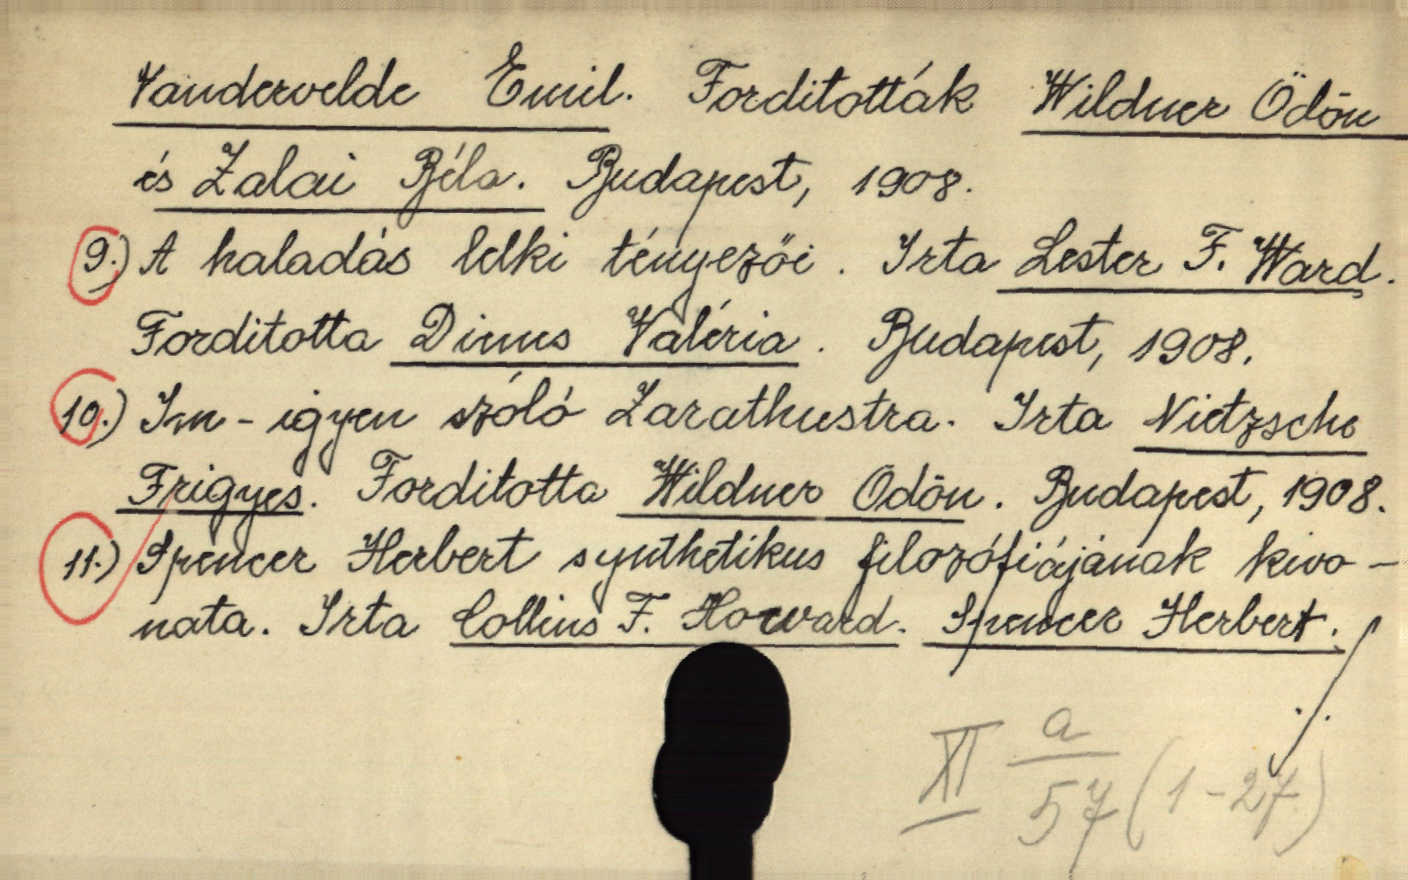 Vandervelde Emil. Forditották Wildner Ödön
és Zalai Béla. Budapest, 1908.
9.) A haladás lelki tényezői. Irta Lester F. Ward.
Forditotta Dienes Valéria. Budapest, 1908.
10.) Im-igyen szóló Zarathustra. Irta Nietzsche
Frigyes. Forditotta Wildner Ödön. Budapest, 1908.
11.) Spencer Herbert synthetikus filozófiájának kivo-
nata. Irta Collins F. Howard. Spencer Herbert.
XI a/57 (1-27.)